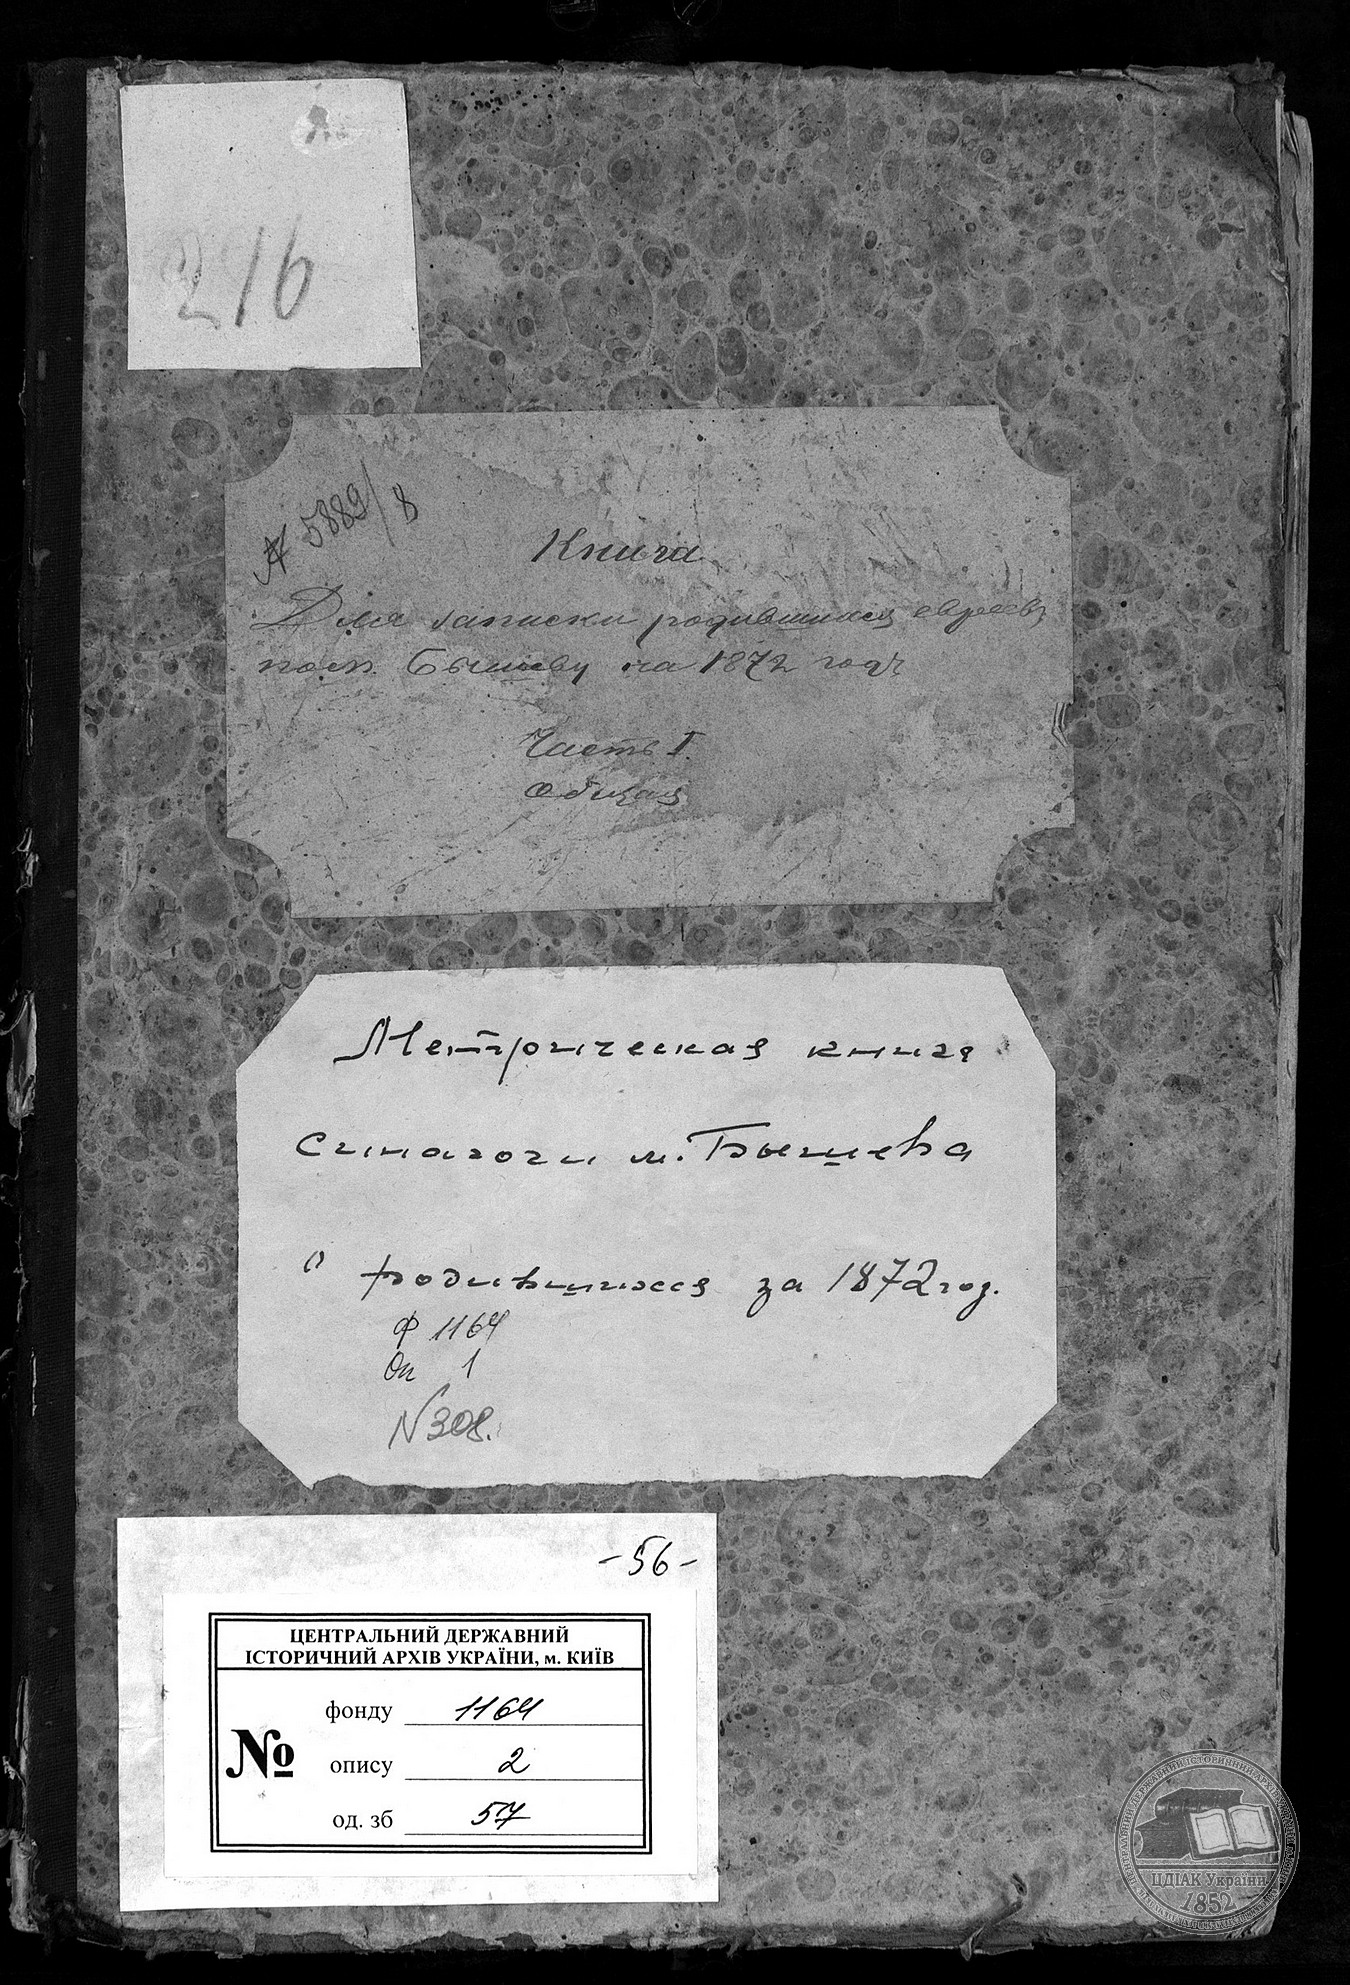 216
№ 5889/8
Книга
Для записки родившихся евреевъ
пом. Бышеву на 1872 годъ
Часть I.
общая
Метрическая книга
синагоги м. Бышева
о родившихся за 1872 год.
ф 1164
Оп 1
N 308.
-56-
ЦЕНТРАЛЬНИЙ ДЕРЖАВНИЙ
ІСТОРИЧНИЙ АРХІВ УКРАЇНИ, м. КИЇВ
№
фонду 1164
опису 2
од. зб 57
ЦДІАК України
1852